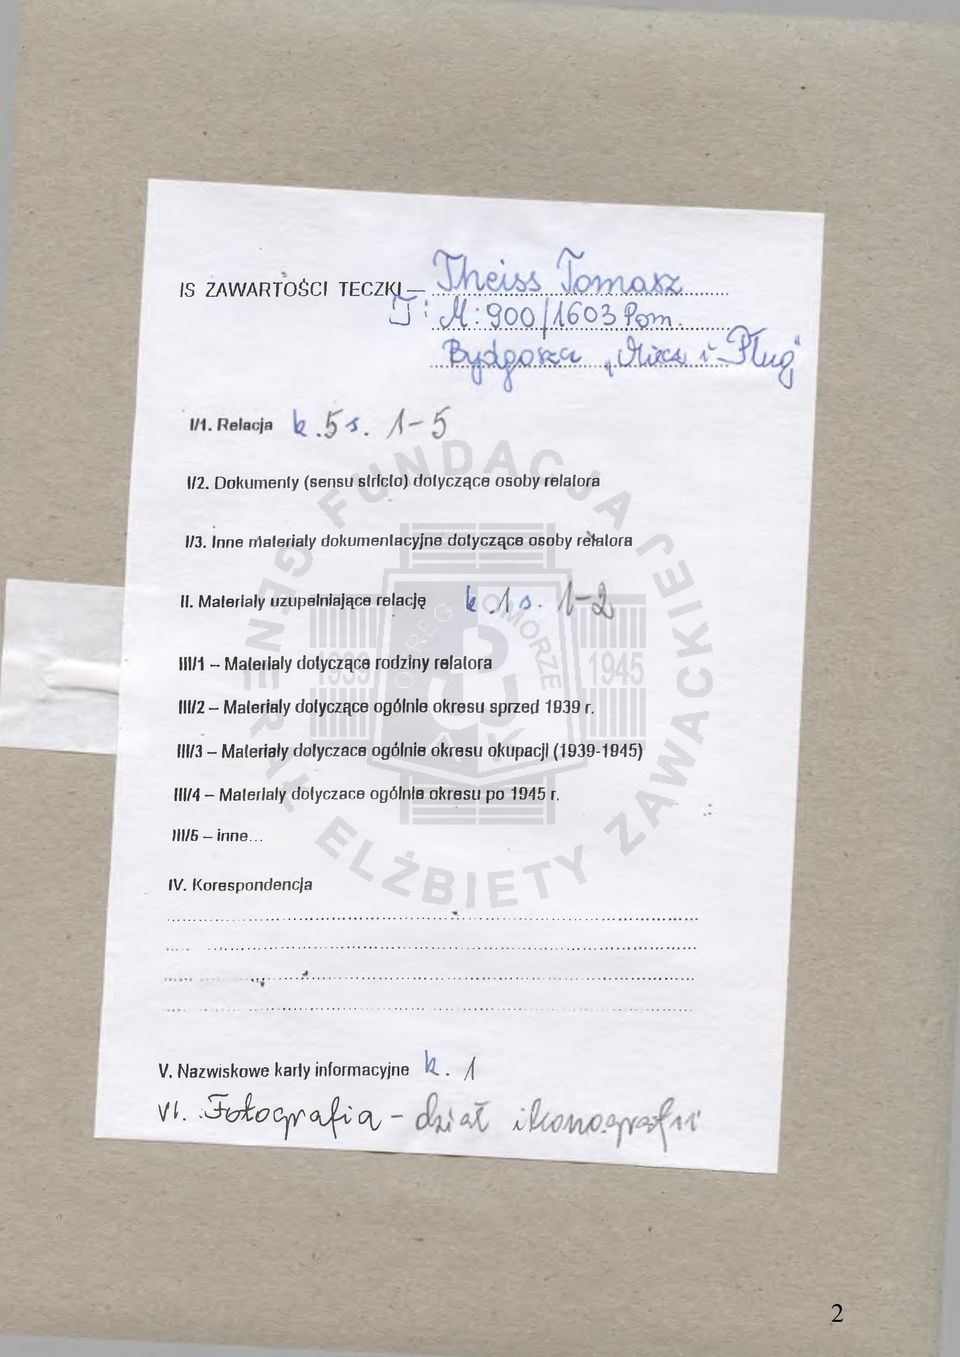 IS ZAWARTOŚCI TECZKI — Theiss Tomasz
T: M: 900/1603 Pom.
Bydgoszcz "Miecz i Pług"
I/1. Relacja k. 5 s. 1-5
I/2. Dokumenty (sensu stricto) dotyczące osoby relatora
I/3. Inne materiały dokumentacyjne dotyczące osoby relatora
II. Materiały uzupełniające relację k. 1 s. 1-2
III/1 – Materiały dotyczące rodziny relatora
III/2 – Materiały dotyczące ogólnie okresu sprzed 1939 r.
III/3 – Materiały dotyczace ogólnie okresu okupacji (1939-1945)
III/4 – Materiały dotyczace ogólnie okresu po 1945 r.
III/5 – inne...
IV. Korespondencja
V. Nazwiskowe karty informacyjne k. 1
VI. Fotografia - dział ikonografii
FUNDACJA GENERAŁ ELŻBIETY ZAWACKIEJ
OKRĘG POMORZE
1939 1945
AK
2